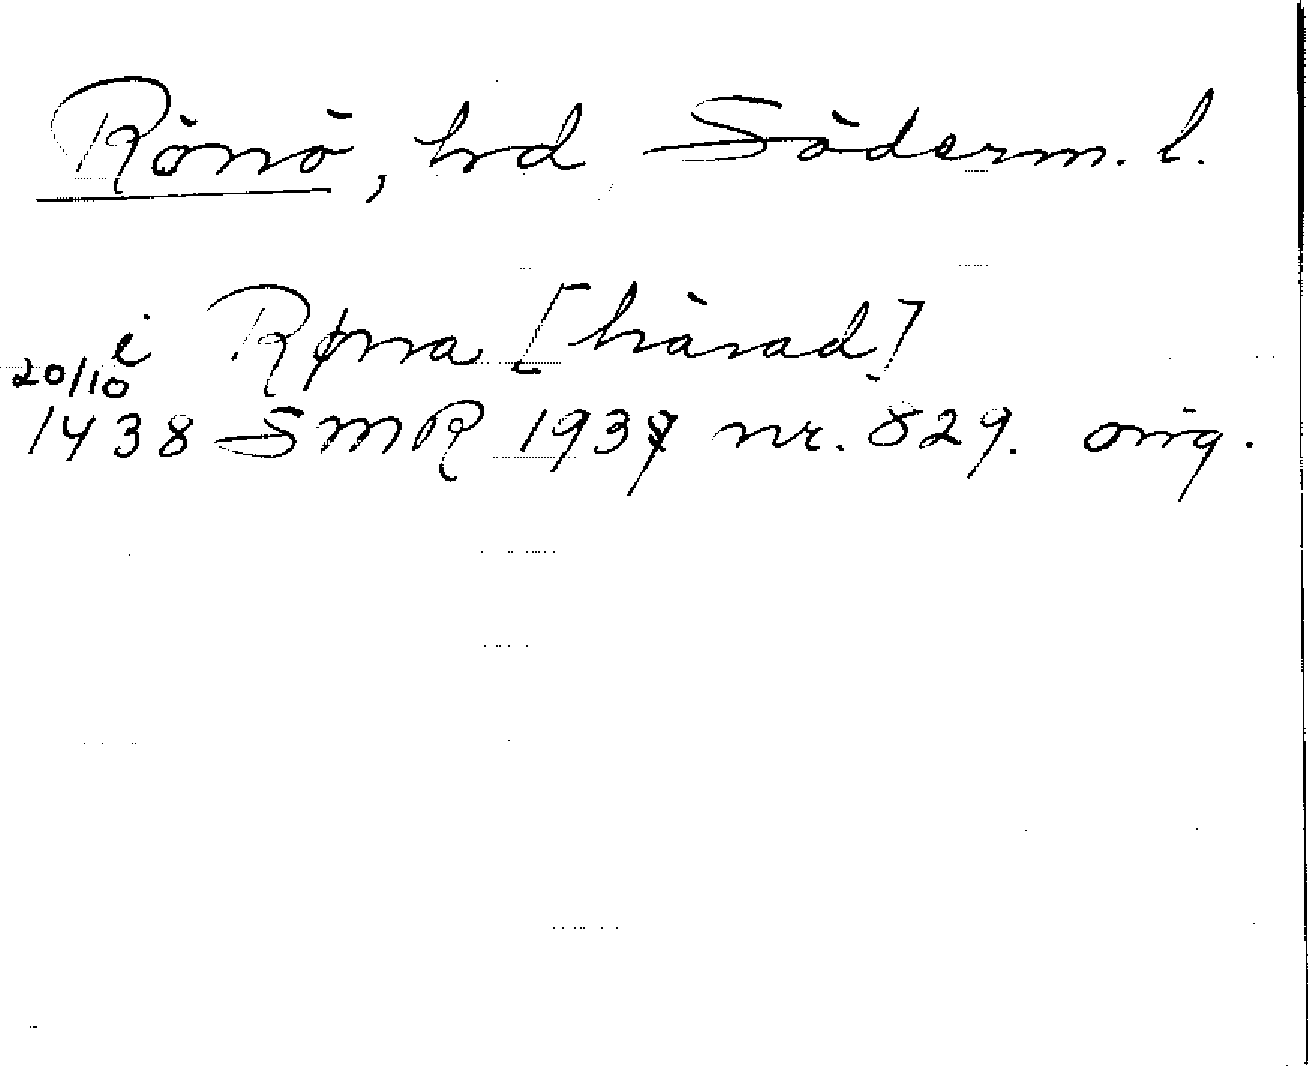 Rönö, hd Söderm. l.
i Røna [härad]
20/10
1438 SMR 1937 nr. 829. orig.